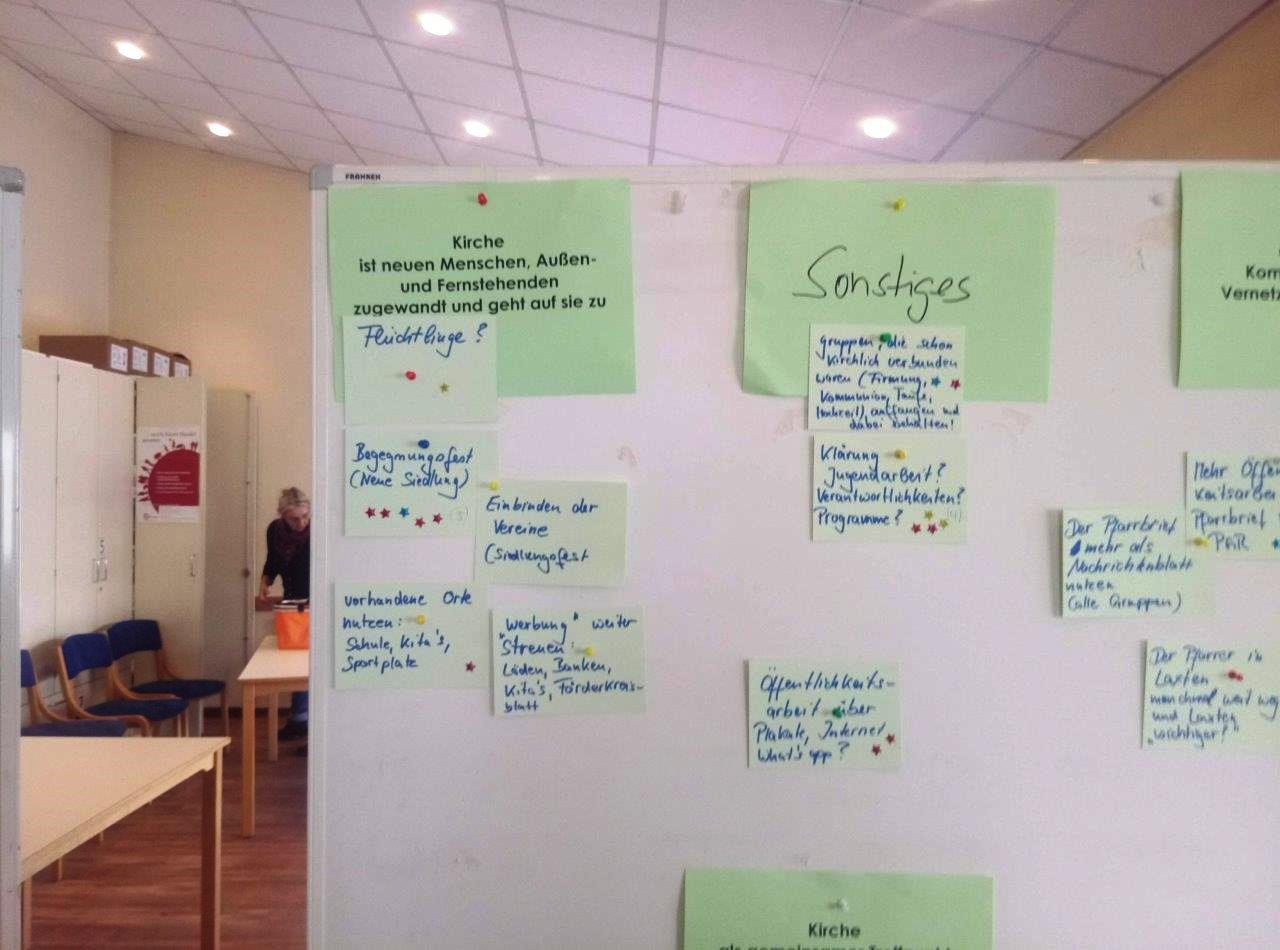 FRANKEN
Kirche
ist neuen Menschen, Außen-
und Fernstehenden
zugewandt und geht auf sie zu
Flüchtlinge?
Begegnungsfest
(Neue Siedlung)
(5)
Einbinden der
Vereine
(Siedlungsfest
vorhandene Orte
nutzen:
Schule, Kita's,
Sportplatz
"Werbung" weiter
streuen:
Läden, Banken,
Kita's, Förderkreis-
blatt
Sonstiges
gruppen, die schon
kirchlich verbunden
waren (Firmung,
Kommunion, Taufe,
Hochzeit) auffangen und
dabei behalten!
Klärung
Jugendarbeit?
Verantwortlichkeiten?
Programme?
(4)
Öffentlichkeits-
arbeit über
Plakate, Internet,
What's app?
Kom
Vernetz
Mehr Öffen
keitsarbei
Pfarrbrief
PGR
Der Pfarrbrief
mehr als
Nachrichtenblatt
nutzen
(alle Gruppen)
Der Pfarrer in
Laxten
manchmal weit weg
und Laxten
"wichtiger?"
Kirche